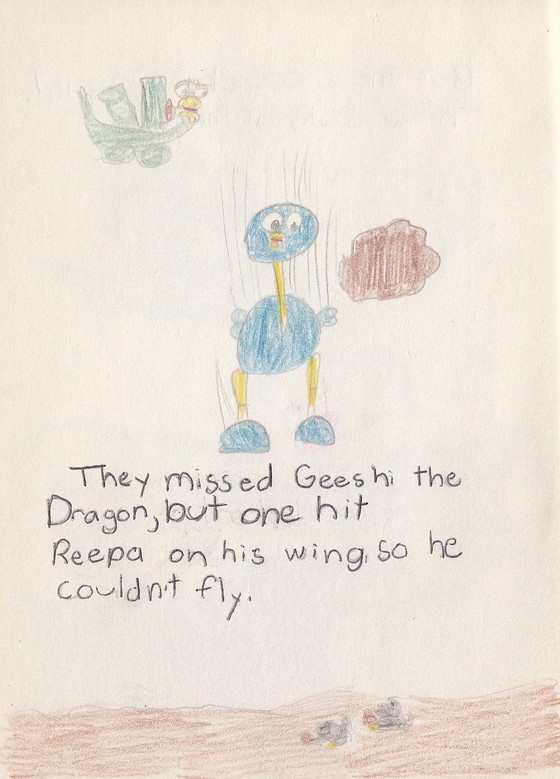 They missed Geeshi the
Dragon, but one hit
Reepa on his wing, so he
couldn't fly.